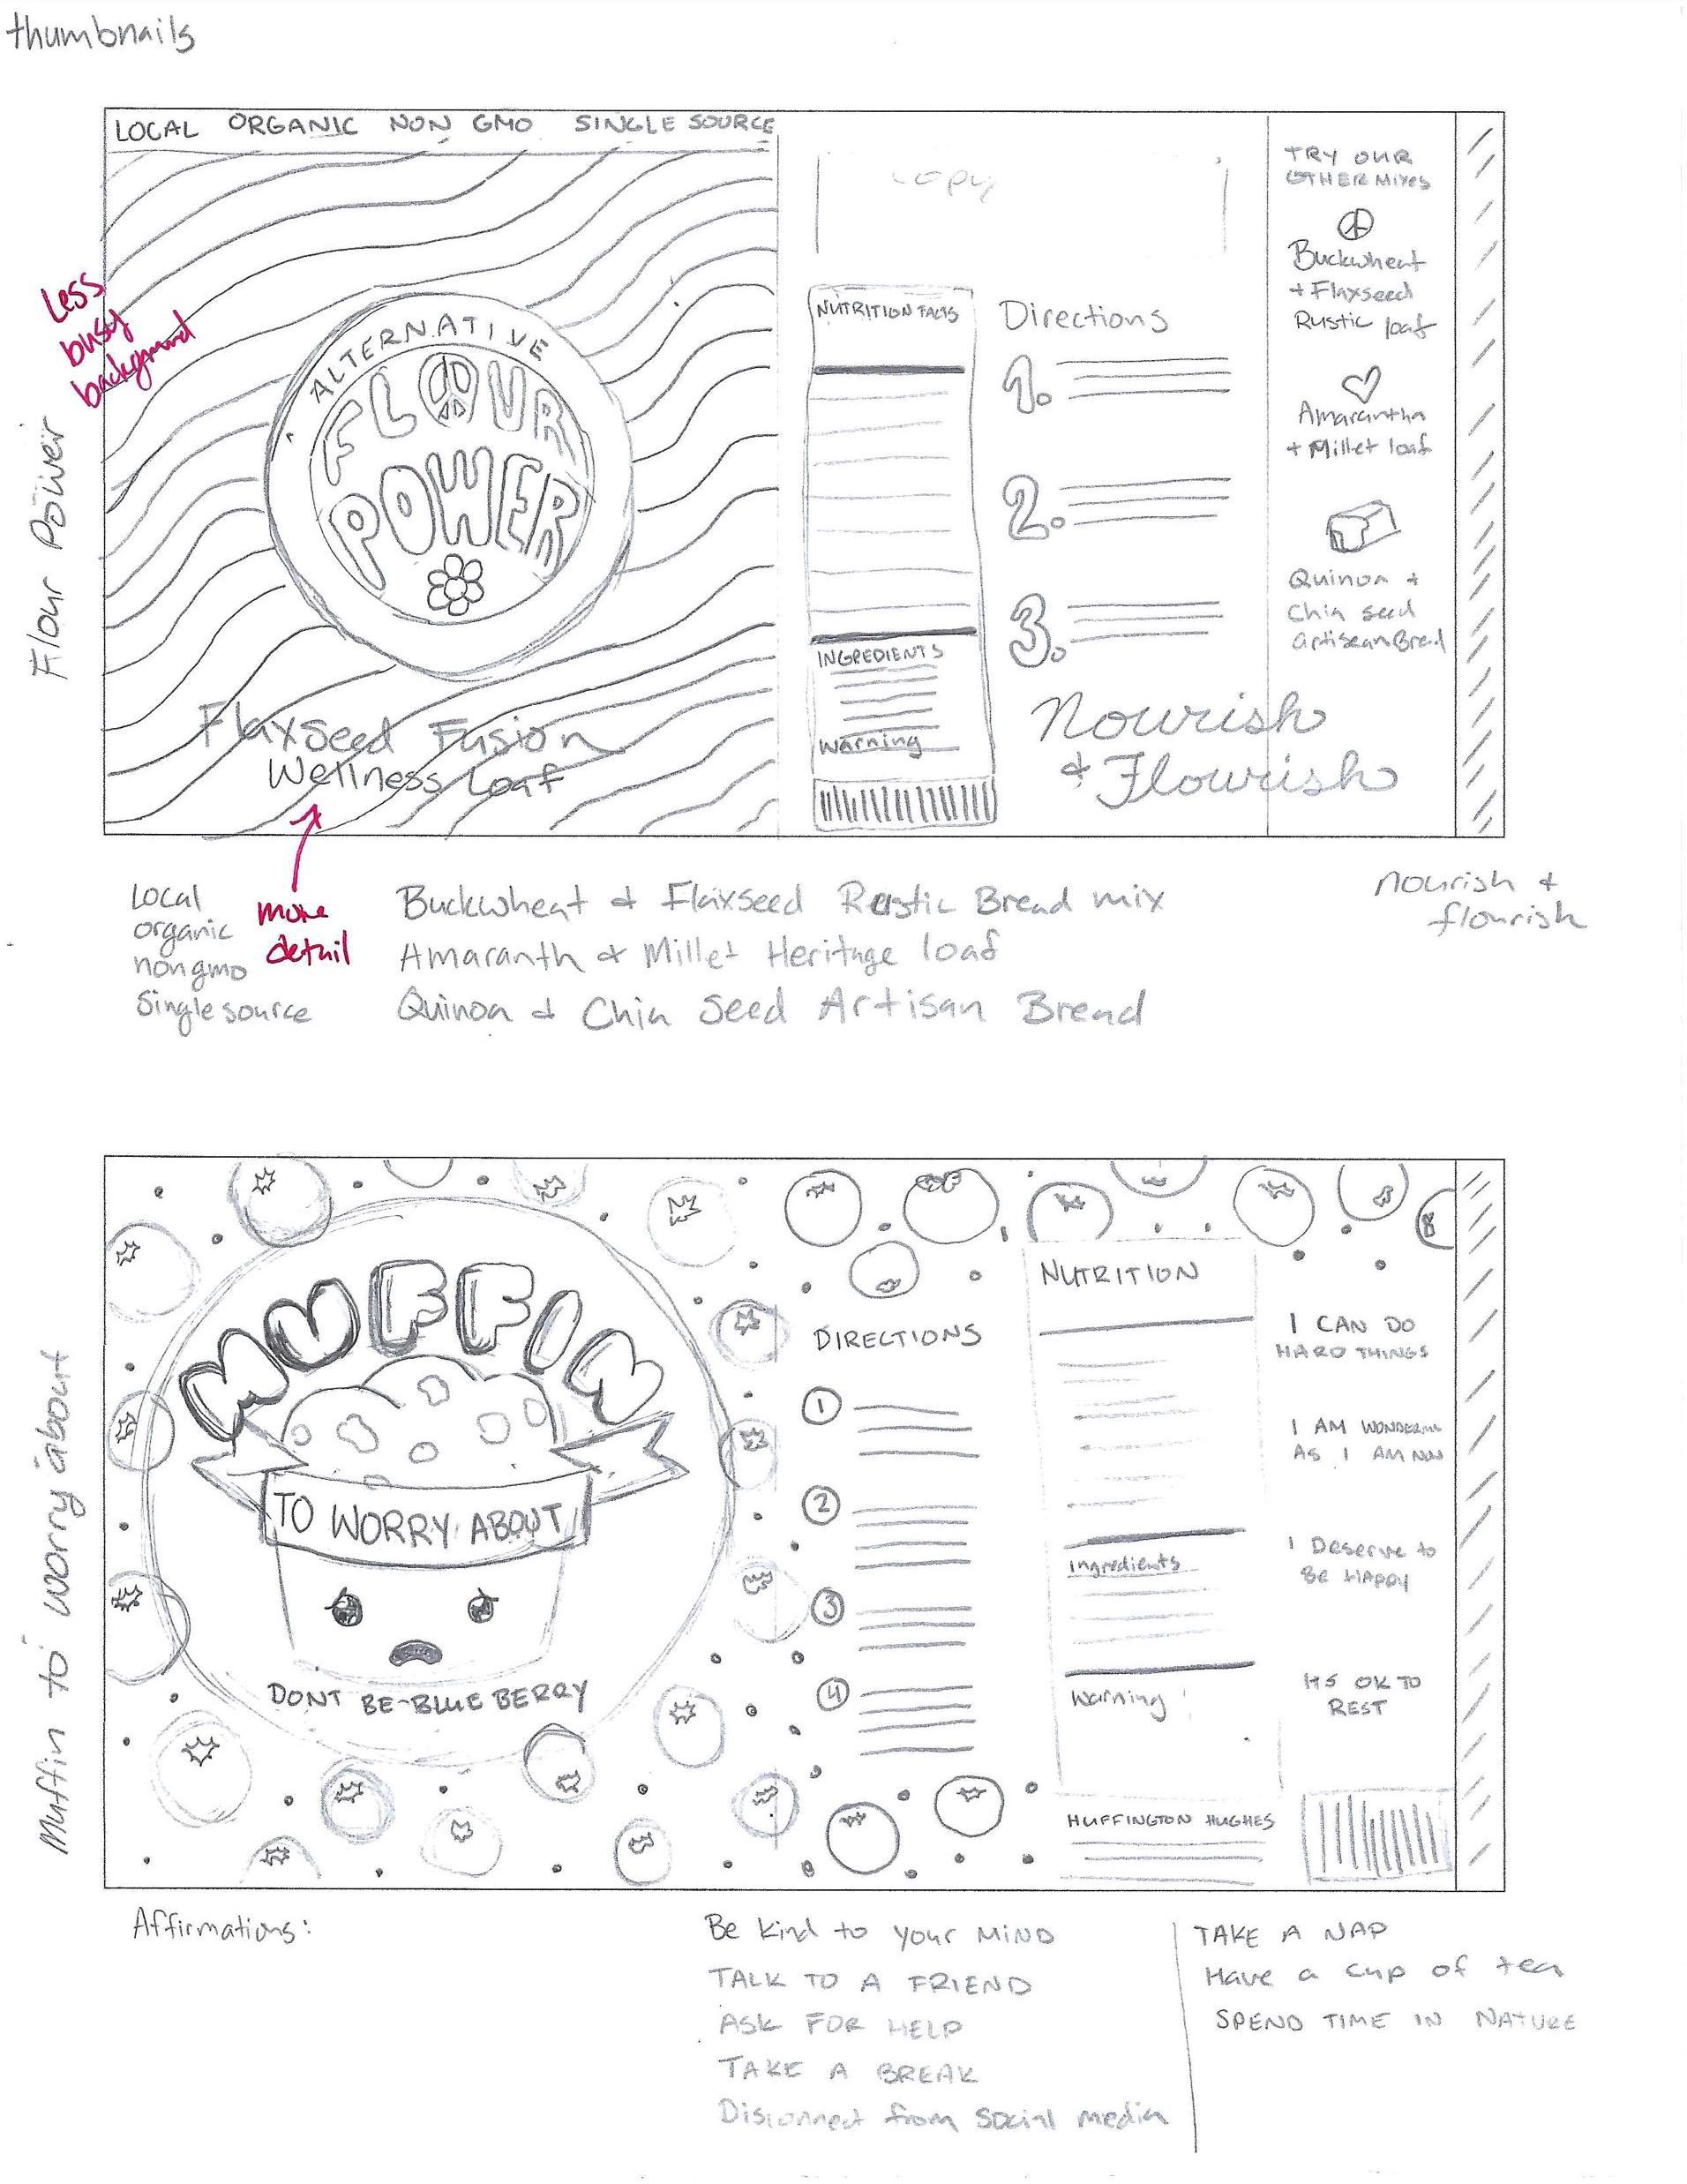 thumbnails
LOCAL ORGANIC NON GMO SINGLE SOURCE
Less
busy
background
Flour Power
ALTERNATIVE
FLOUR
POWER
Flaxseed Fusion
Wellness Loaf
copy
NUTRITION FACTS
INGREDIENTS
Warning
Directions
1.
2.
3.
Nourish
& Flourish
TRY OUR
OTHER MIXES
Buckwheat
+ Flaxseed
Rustic loaf
Amarantha
+ Millet loaf
Quinoa +
Chia seed
artisean Bread
Local
organic
non gmo
Single source
more
detail
Buckwheat & Flaxseed Rustic Bread mix
Amaranth & Millet Heritage loaf
Quinoa & Chia Seed Artisan Bread
nourish &
flourish
Muffin to worry about
MUFFIN
TO WORRY ABOUT
DONT BE-BLUE BERRY
DIRECTIONS
1
2
3
4
NUTRITION
Ingredients
Warning
HUFFINGTON HUGHES
I CAN DO
HARD THINGS
I AM
AS I AM NOW
I Deserve to
BE HAPPY
ITS OK TO
REST
Affirmations:
Be kind to your MIND
TALK TO A FRIEND
ASK FOR HELP
TAKE A BREAK
Disconnect from social media
TAKE A NAP
Have a cup of tea
SPEND TIME IN NATURE